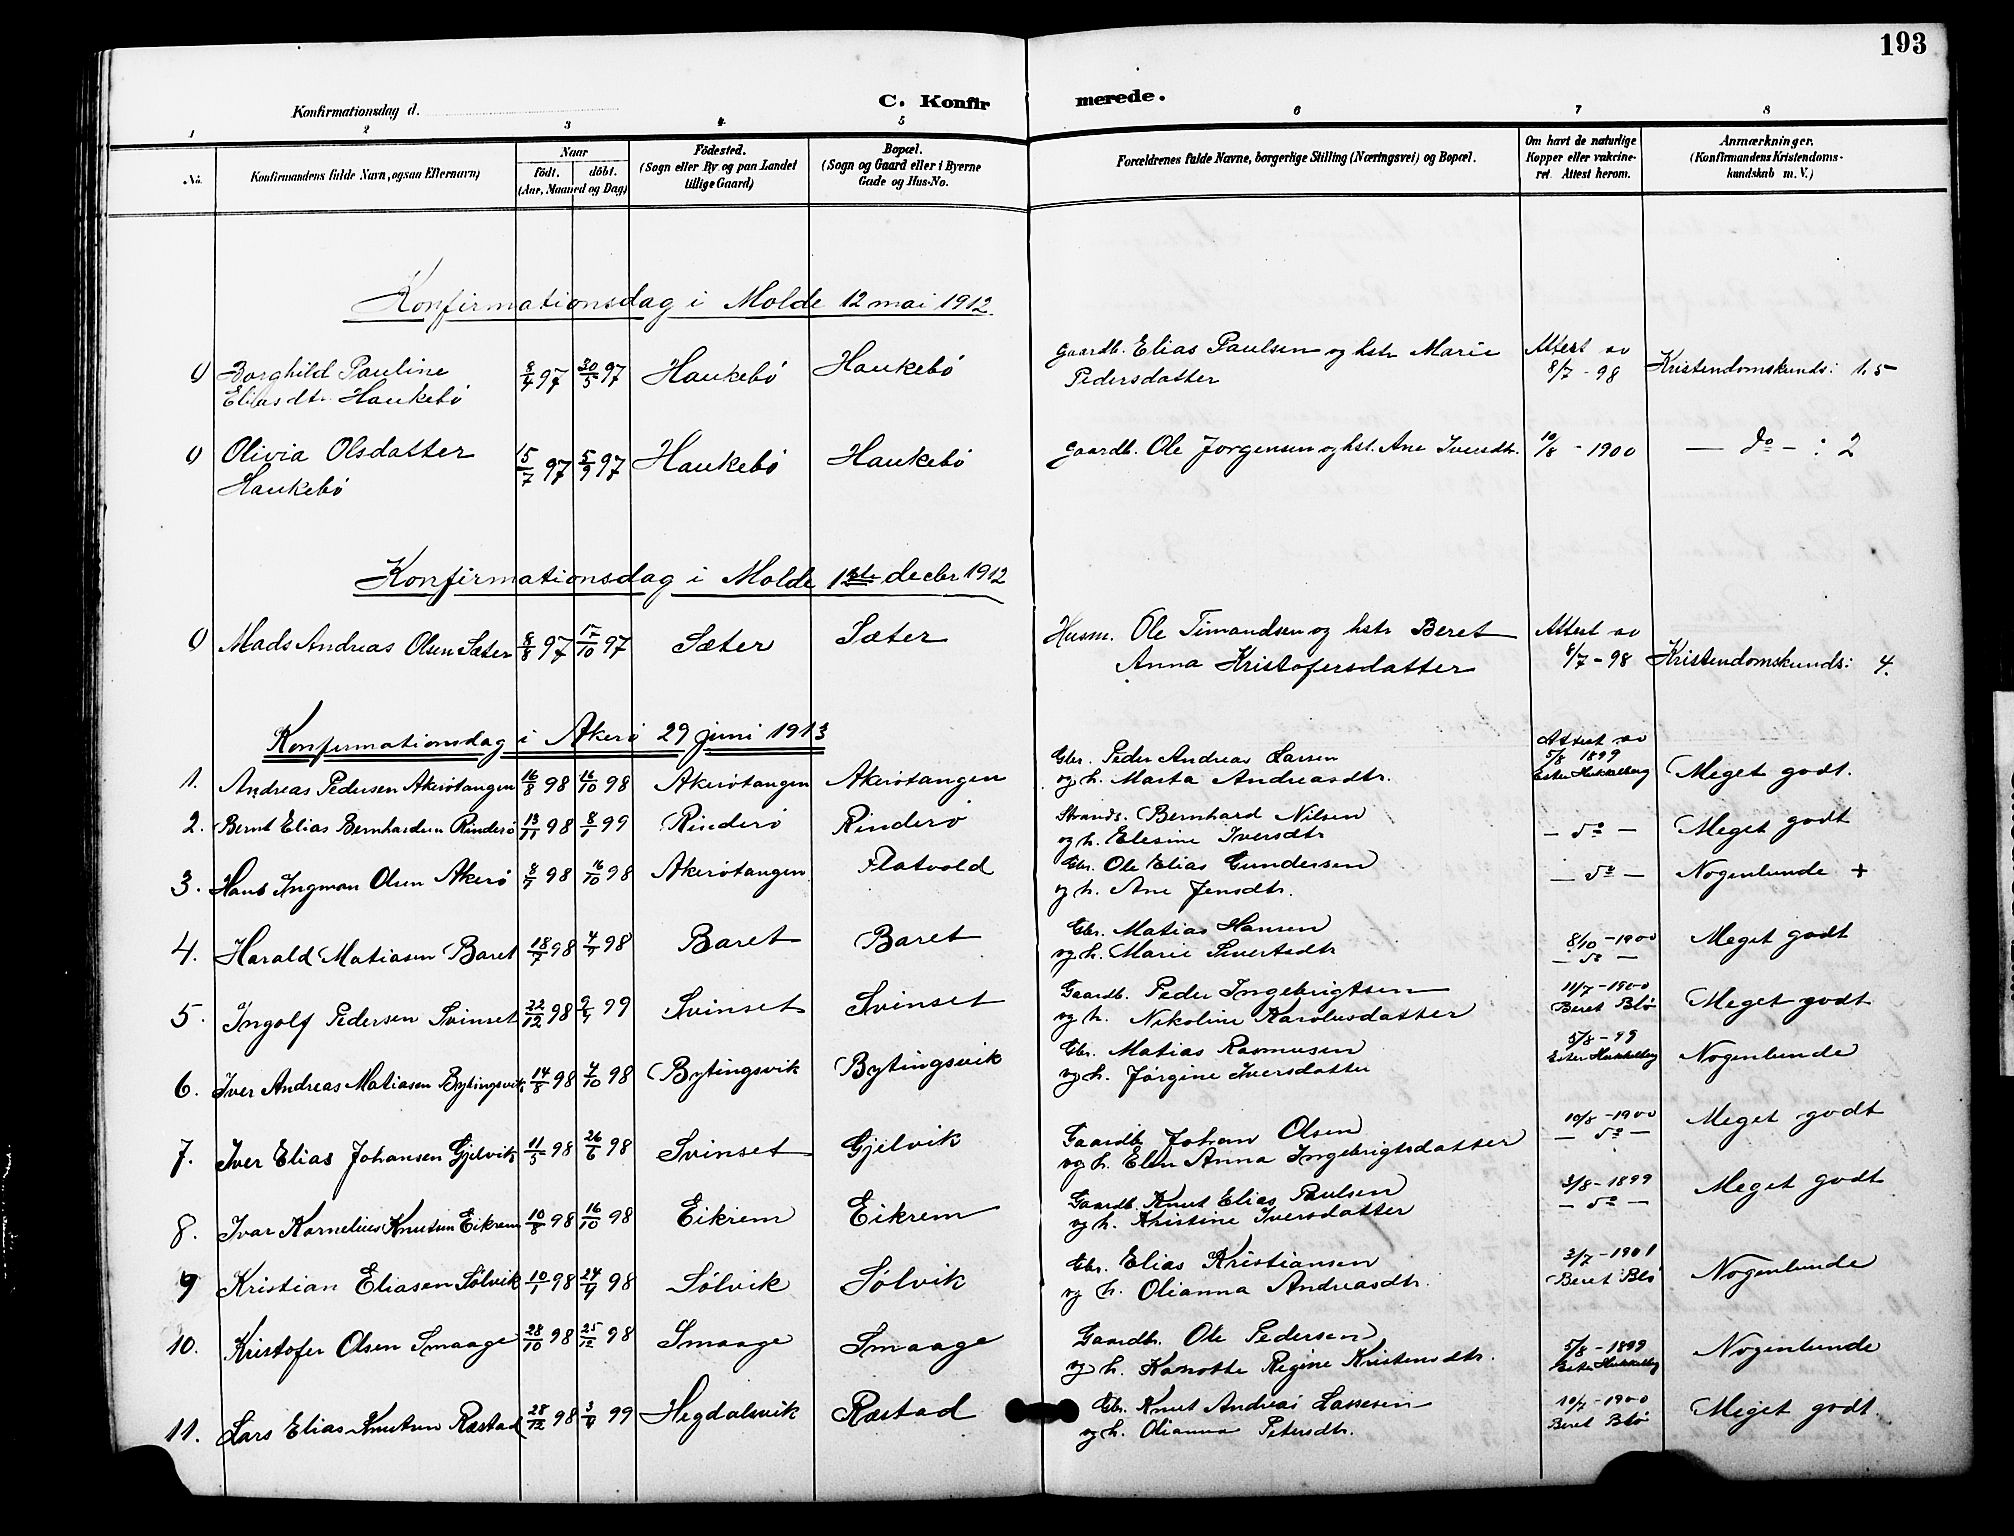 193
Konfirmationsdag d.
C. Konfirmerede.
1 2 3 4. 5 6 7 8
No. Konfirmandens fulde Navn, ogsaa Efternavn)
Naar
födt. döbt.
(Aar, Maaned og Dag)
Födested.
(Sogn eller By og paa Landet
tillige Gaard)
Bopæl.
(Sogn og Gaard eller i Byerne
Gade og Hus-No.
Forældrenes fulde Navne, borgerlige Stilling (Næringsvei) og Bopæl.
Om havt de naturlige
Kopper eller vakcine-
ret. Attest herom.
Anmærkninger.
(Konfirmandens Kristendoms-
kundskab m. V.)
Konfirmationsdag i Molde 12 mai 1912
Borghild Pauline 97 30/5 97 Haukebö Haukebö Gaardb. Elias Paulsen og hstr Marie Attest av Kristendomskunds: 1.5
Eliasdtr. Haukebö Pedersdatter 8/7 - 98
Olivia Olsdatter 15/7 97 5/9 97 Haukebö Haukebö Gaardb. Ole Jorgensen og hst. Ane Iversdtr. 10/8 - 1900 — do — : 2
Haukebö
Konfirmationsdag i Molde 1ste decbr 1912
Mads Andreas Olsen Sæter 8/8 97 17/10 97 Sæter Sæter Husm. Ole Timandsen og hstr Beret Attest av
Anna Kristofersdatter 8/7 - 98 Kristendomskunds: 4.
Konfirmationsdag i Akerö 29 juni 1913
1. Andreas Pedersen Akerötangen 16/8 98 16/10 98 Akerötangen Akerötangen Gbr. Peder Andreas Larsen Attest av 5/8 1899 Meget godt.
og h. Marta Andreasdtr.
2. Bernt Elias Bernhardsen Rinderö 13/11 98 8/1 99 Rinderö Rinderö Strands. Bernhard Nilsen — do — Meget godt
og h. Elesine Iversdtr
3. Hans Ingman Olsen Akerö 98 16/10 98 Akerötangen Flatvold Gbr. Ole Elias Gundersen — do — Nogenlunde +
og h. Ane Jensdtr.
4. Harald Matiasen Baret 18/7 98 98 Baret Baret Gbr. Matias Hansen 8/10 - 1900 Meget godt
og h. Marie Sivertsdtr — do —
5. Ingolf Pedersen Svinset 22/12 98 99 Svinset Svinset Gaardb. Peder Ingebrigtsen 11/7 - 1900 Meget godt
og h. Nikoline Karolusdatter Beret Blö
6. Iver Andreas Matiasen Bytingsvik 14/8 98 98 Bytingsvik Bytingsvik Gbr. Matias Rasmusen 5/8 - 99 Nogenlunde
og h. Jörgine Iversdatter
7. Iver Elias Johansen Gjelvik 11/5 98 26/6 98 Svinset Gjelvik Gaardb. Johan Olsen 10/8 - 1900 Meget godt
og h. Elen Anna Ingebrigtsdatter — do —
8. Ivar Kornelius Knutsen Eikrem 10/8 98 16/10 98 Eikrem Eikrem Gaardb. Knut Elias Paulsen 3/8 - 1899 Meget godt
og h. Kristine Iversdatter — do —
9 Kristian Eliasen Sölvik 10/1 98 24/4 98 Sölvik Sölvik Gbr. Elias Kristiansen 3/7 - 1901 Nogenlunde
og h. Olianna Andreasdtr. Beret Blö
10. Kristofer Olsen Smaage 28/10 98 25/12 98 Smaage Smaage Gaardbr. Ole Pedersen 5/8 - 1899 Nogenlunde
og h. Regine Kristensdtr.
11. Lars Elias Knutsen Ræstad 28/12 98 99 Hegdalsvik Ræstad Gbr. Knut Andreas Lassesen - 1900 Meget godt.
og h. Olianna Petersdtr. Beret Blö